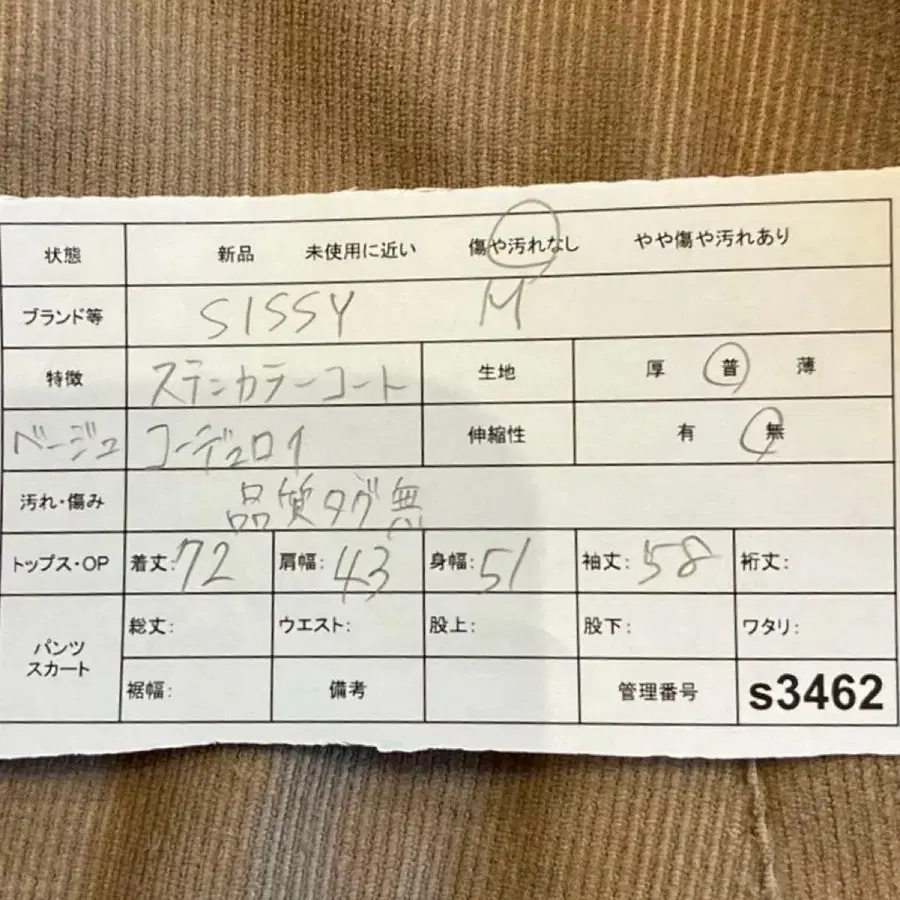 状態 新品 未使用に近い 傷や汚れなし やや傷や汚れあり
ブランド等 SISSY M
特徴 ステンカラーコート 生地 厚 普 薄
ベージュ コーデュロイ 伸縮性 有 無
汚れ・傷み 品質タグ無
トップス・OP 着丈: 72 肩幅: 43 身幅: 51 袖丈: 58 裄丈:
パンツ スカート 総丈: ウエスト: 股上: 股下: ワタリ:
裾幅: 備考 管理番号 s3462